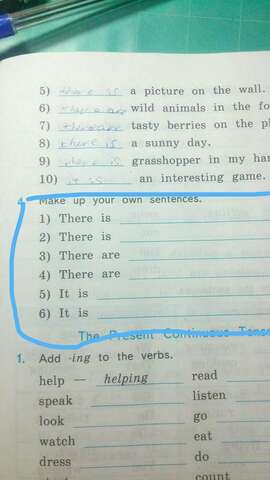 5) there is a picture on the wall.
6) there are wild animals in the
7) there are tasty berries on the
8) there is a sunny day.
9) there is grasshopper in my
10) it is an interesting game.
4. Make up your own sentences.
1) There is
2) There is
3) There are
4) There are
5) It is
6) It is
The Present Continuous
1. Add -ing to the verbs.
help — helping read
speak listen
look go
watch eat
dress do
count